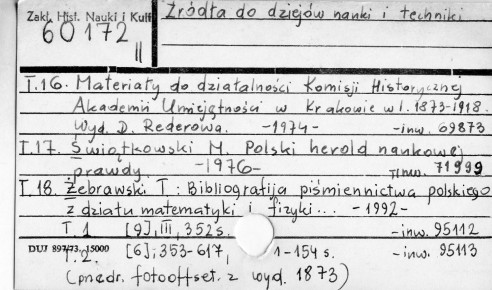 Zakł. Hist. Nauki i Kult
60172
II
Źródła do dziejów nauki i techniki
T.16. Materiały do działalności Komisji Historycznej
Akademii Umiejętności w Krakowie w l. 1873-1918.
Wyd. D. Rederowa. -1974- -inw. 69873
T.17. Świątkowski M. Polski herold naukowej
prawdy. -1976- -inw. 71999
T.18. Żebrawski T.: Bibliografija piśmiennictwa polskiego
z działu matematyki i fizyki... -1992-
T.1 [9], III, 352 s. -inw. 95112
DUJ 897/73. 15000
T.2. [6]; 353-617, 1-154 s. -inw. 95113
(przedr. fotooffset. z wyd. 1873)